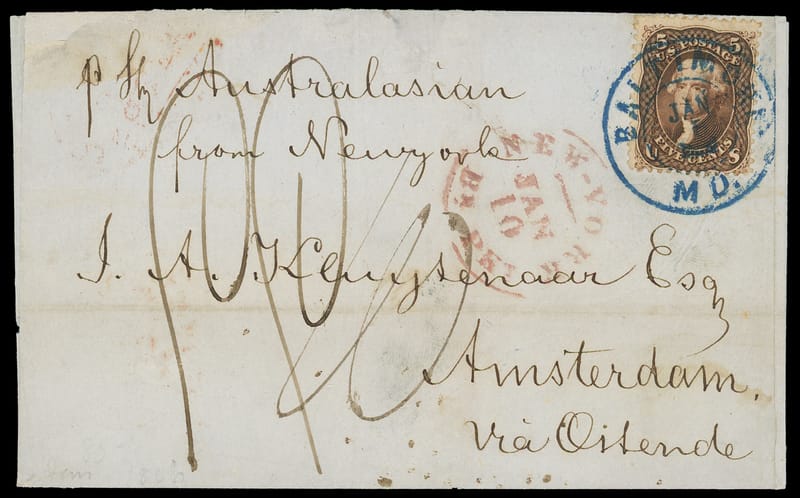 5 U.S. POSTAGE 5
FIVE CENTS
BALTIMORE
JAN
MD.
p Str Australasian
from Newyork
NEW-YORK
JAN
10
BR. PKT
J. A. Kluysenaar Esq
Amsterdam.
viâ Ostende